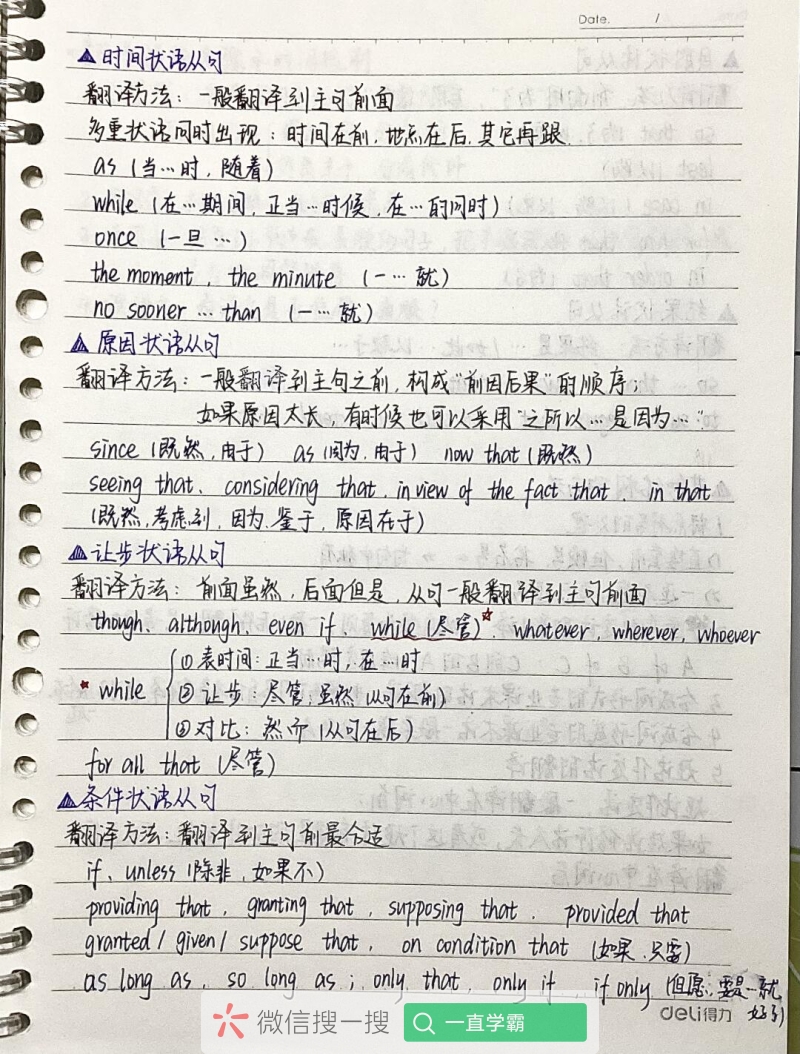 Date. /
▲时间状语从句
翻译方法：一般翻译到主句前面
多重状语同时出现：时间在前，地点在后，其它再跟.
as (当…时，随着)
while (在…期间，正当…时候，在…的同时)
once (一旦…)
the moment, the minute (一…就)
no sooner … than (一…就)
▲原因状语从句
翻译方法：一般翻译到主句之前，构成"前因后果"的顺序；
如果原因太长，有时候也可以采用"之所以…是因为…"
since (既然，由于) as (因为，由于) now that (既然)
seeing that、considering that, in view of the fact that, in that
(既然，考虑到，因为，鉴于，原因在于)
▲让步状语从句
翻译方法：前面虽然，后面但是，从句一般翻译到主句前面
though、although、even if、while (尽管)☆ whatever, wherever, whoever
*while
①表时间：正当…时，在…时
②让步：尽管；虽然 (从句在前)
③对比：然而 (从句在后)
for all that (尽管)
▲条件状语从句
翻译方法：翻译到主句前最合适
if、unless (除非，如果不)
providing that, granting that, supposing that. provided that
granted / given / suppose that, on condition that (如果，只要)
as long as, so long as; only that, only if, if only (但愿，要是…就好了)
deli得力
微信搜一搜 一直学霸